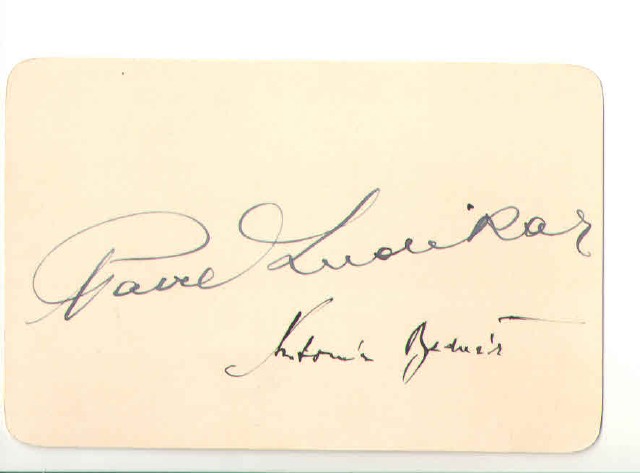 Pavel Ludikar
Antonín Bednář